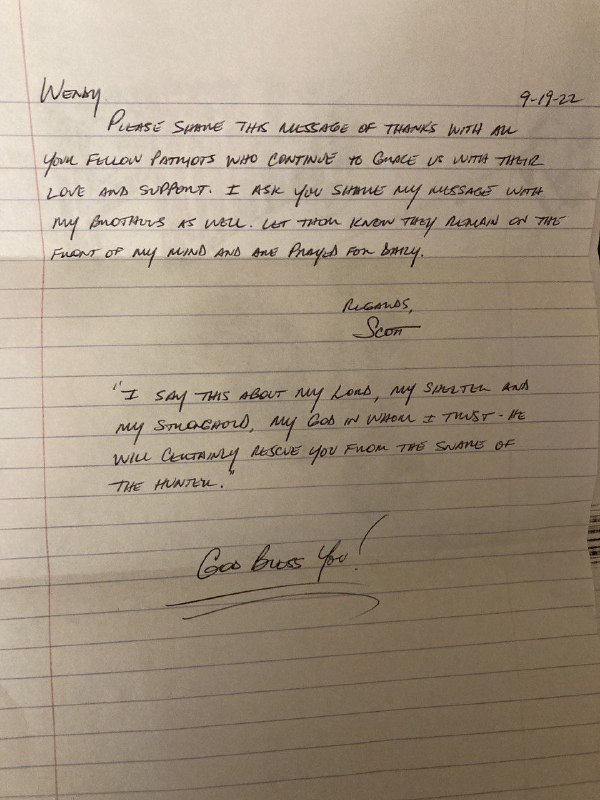 WENDY
9-19-22
PLEASE SHARE THIS MESSAGE OF THANKS WITH ALL
YOUR FELLOW PATRIOTS WHO CONTINUE TO GRACE US WITH THEIR
LOVE AND SUPPORT. I ASK YOU SHARE MY MESSAGE WITH
MY BROTHERS AS WELL. LET THEM KNOW THEY REMAIN ON THE
FRONT OF MY MIND AND ARE PRAYED FOR DAILY.
REGARDS,
SCOTT
"I SAY THIS ABOUT MY LORD, MY SHELTER AND
MY STRONGHOLD, MY GOD IN WHOM I TRUST - HE
WILL CERTAINLY RESCUE YOU FROM THE SNARE OF
THE HUNTER."
GOD BLESS YOU!